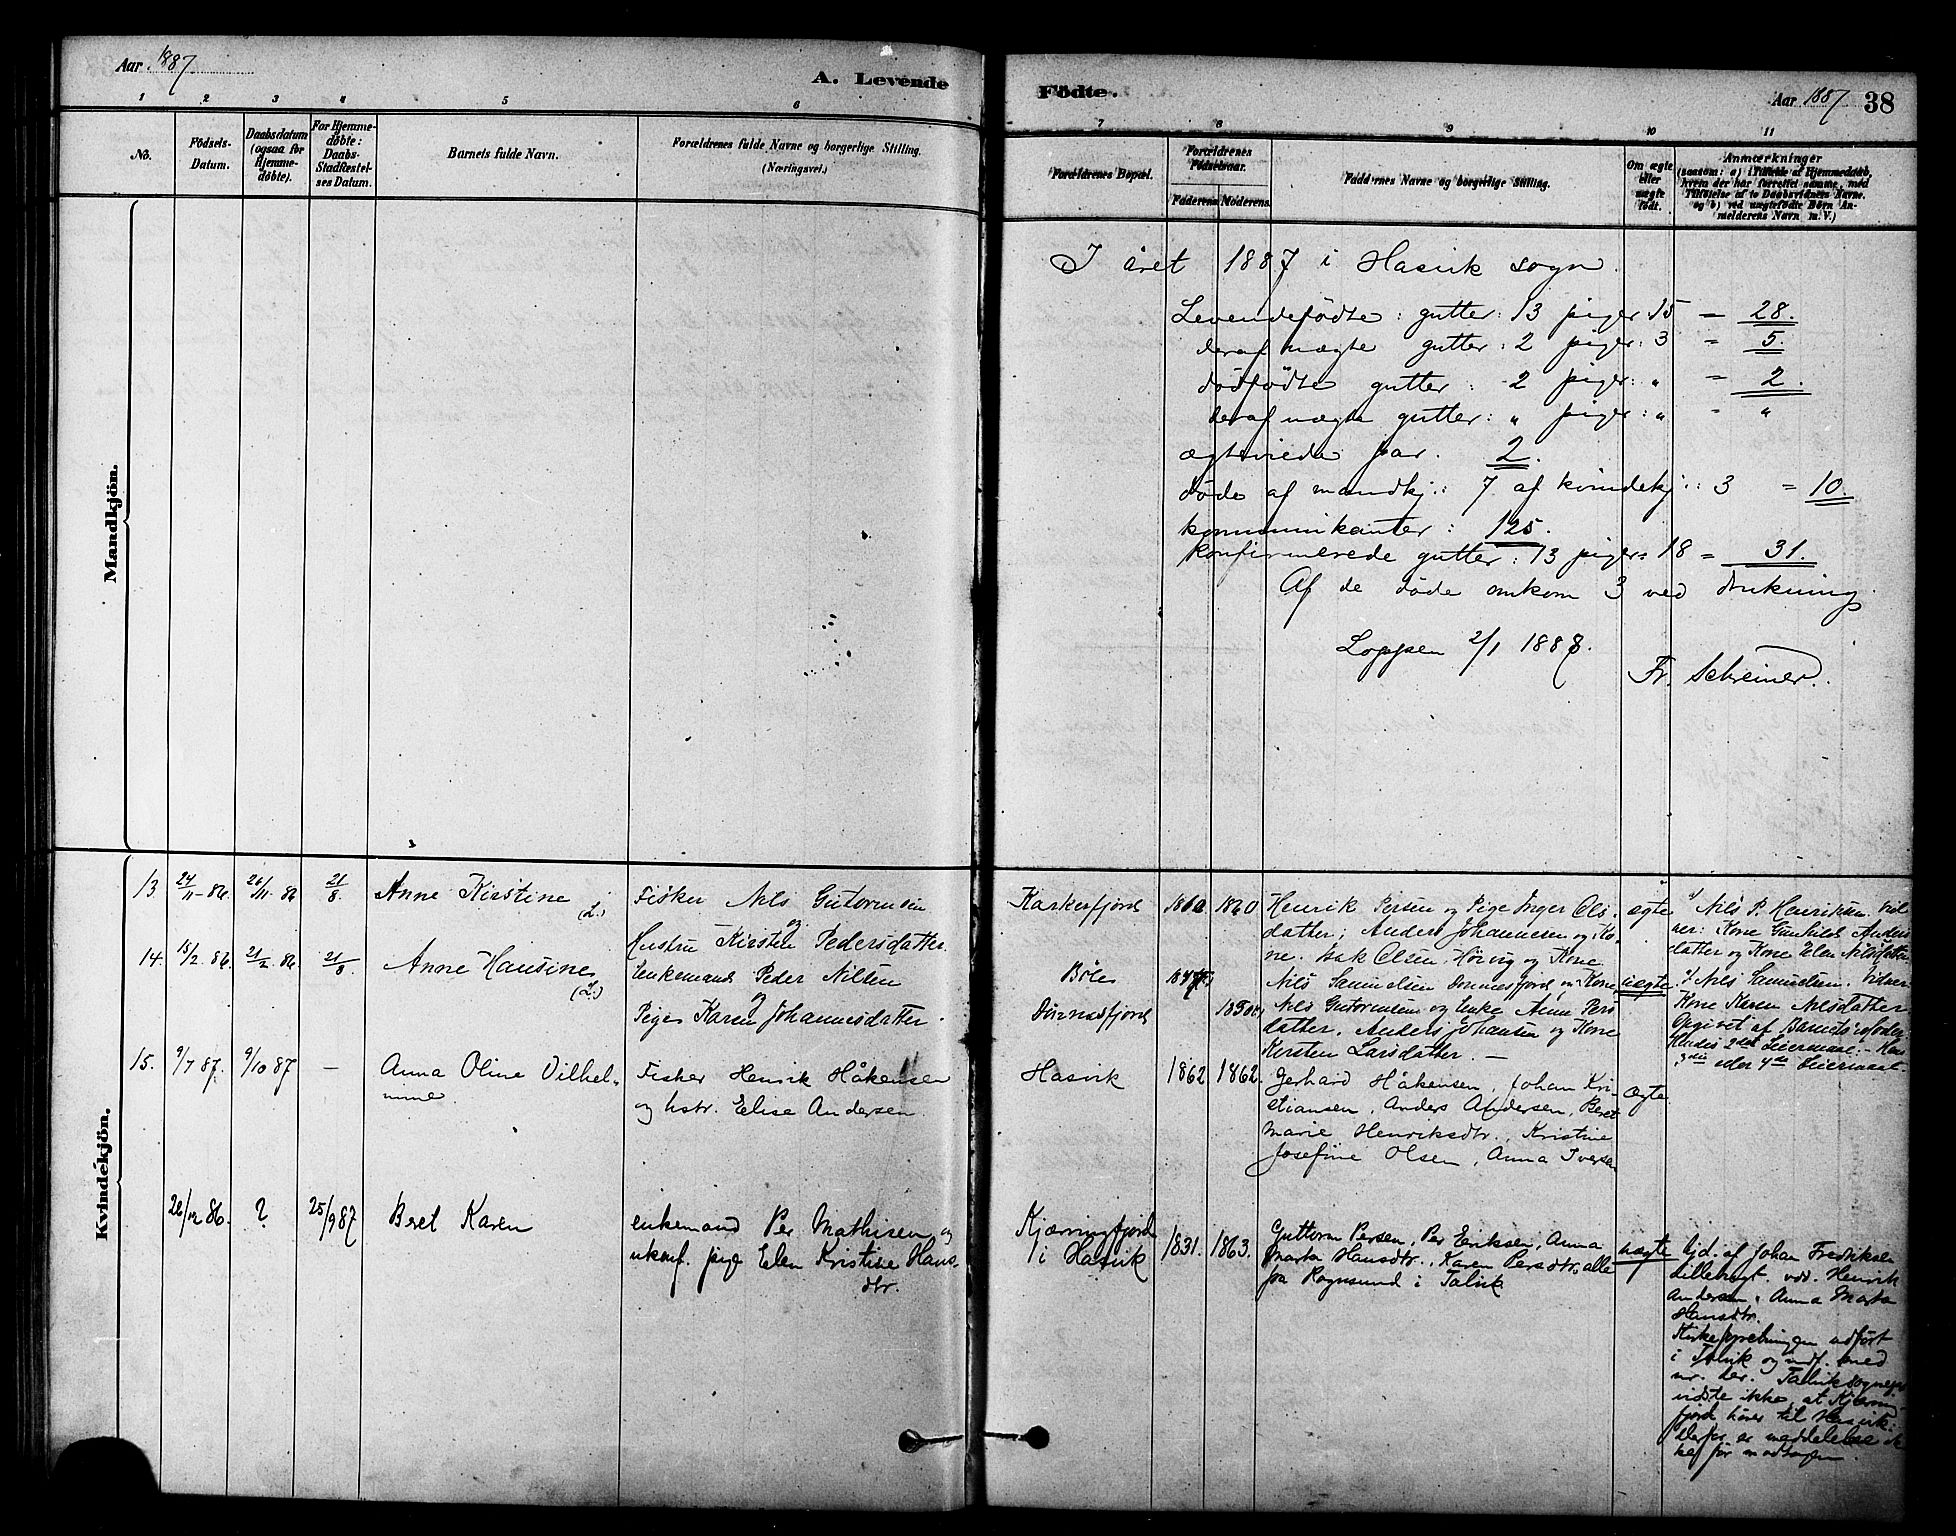 Aar 1887
A. Levende
1 2 3 4 5 6
No.
Födsels-
Datum.
Daabsdatum
(ogsaa for
Hjemme-
døbte).
For Hjemme-
døbte:
Daabs-
Stadfæstel-
ses Datum.
Barnets fulde Navn.
Forældrenes fulde Navne og borgerlige Stilling.
(Næringsvei.)
Mandkjön.
Kvindekjön.
13. 24/11-86. 26/11 86 21/8. Anne Kirstine (L.)
Fisker Nils Guttormsen
og
Hustru Kirsten Pedersdatter
14. 15/2. 86. 21/2. 86 21/8 Anne Hansine (L.)
Enkemand Peder Nilsen
og
Pige Karen Johannesdatter.
15. 9/7 87. 9/10 87 — Anna Oline Vilhel-
mine.
Fisker Henrik Håkensen
og hstr. Elise Andersen.
26/12 86. ? 25/9 87 Beret Karen
enkemand Per Mathisen og
ukonf. pige Elen Kristine Hans-
dtr.
Födte.
Aar 1887 38
7 8 9 10 11
Forældrenes Bopæl.
Forældrenes
Fødselsaar.
Faderens Moderens.
Faddernes Navne og borgerlige Stilling.
Om ægte
eller
uægte
født.
Anmærkninger
(saasom: a) i Tilfælde af Hjemmedaab,
hvem der har forrettet samme, med
Tilföielse af to Daabsvidners Navne.
og b) ved uægtefødte Börn An-
melderens Navn m. V.)
I året 1887 i Hasvik sogn.
Levendefødte: gutter: 13 piger 15 = 28.
deraf uægte gutter: 2 piger: 3 = 5.
dødfødte gutter: 2 piger: " = 2.
deraf uægte gutter: " piger: " = "
ægteviede par. 2.
døde af mandkj.: 7 af kvindekj.: 3 = 10.
kommunikanter: 125.
konfirmerede gutter: 13 piger: 18 = 31.
Af de døde omkom 3 ved drukning
Loppen 2/1 1888.
Fr. Schreiner.
Karkenfjord 1860
Henrik Persen og Pige Inger Ols-
datter; Anders Johannesen og Ko-
ne. Isak Olsen, Hörvig og Kone
ægte
Nils P. Henriksen. Vid-
ner: Kone Gunhild Anders
datter og Kone Elen Nilsdatter
Böle
Dönnesfjord 1850
Nils Samuelsen Dönnesfjord og Kone
Nils Guttormsen og Enke Anne Pers
datter, Anders Johansen og Kone
Kersten Larsdatter. —
uægte
Nils Samuelsen. Vidner
Kone Karen Nilsdatter
Opgivet af Barnets Moder
Hendes 2det Leiermaal. — Hans
3die eller 4de Leiermaal.
Hasvik 1862 1862
Gerhard Håkensen, Johan Kri-
stiansen, Anders Andersen, Beret
Marie Henriksdtr., Kristine
Josefine Olsen, Anna Iversen
ægte
Kjærringfjord
i Hasvik 1831. 1863.
Guttorm Persen, Per Eriksen, Anna
Marta Hansdtr., Karen Persdtr, alle
fra Rognsund i Talvik
uægte
hjd. af Johan Fredriksen
Lillebugt. vdr. Henrik
Andersen, Anna Marta
Hansdtr.
Kirkefpretningen udført
i Talvik og indf. med
nr. der.
vidste ikke, at Kjærring-
fjord hører til Hasvik.
derfor er meddelelse ik
ke før modtagen.